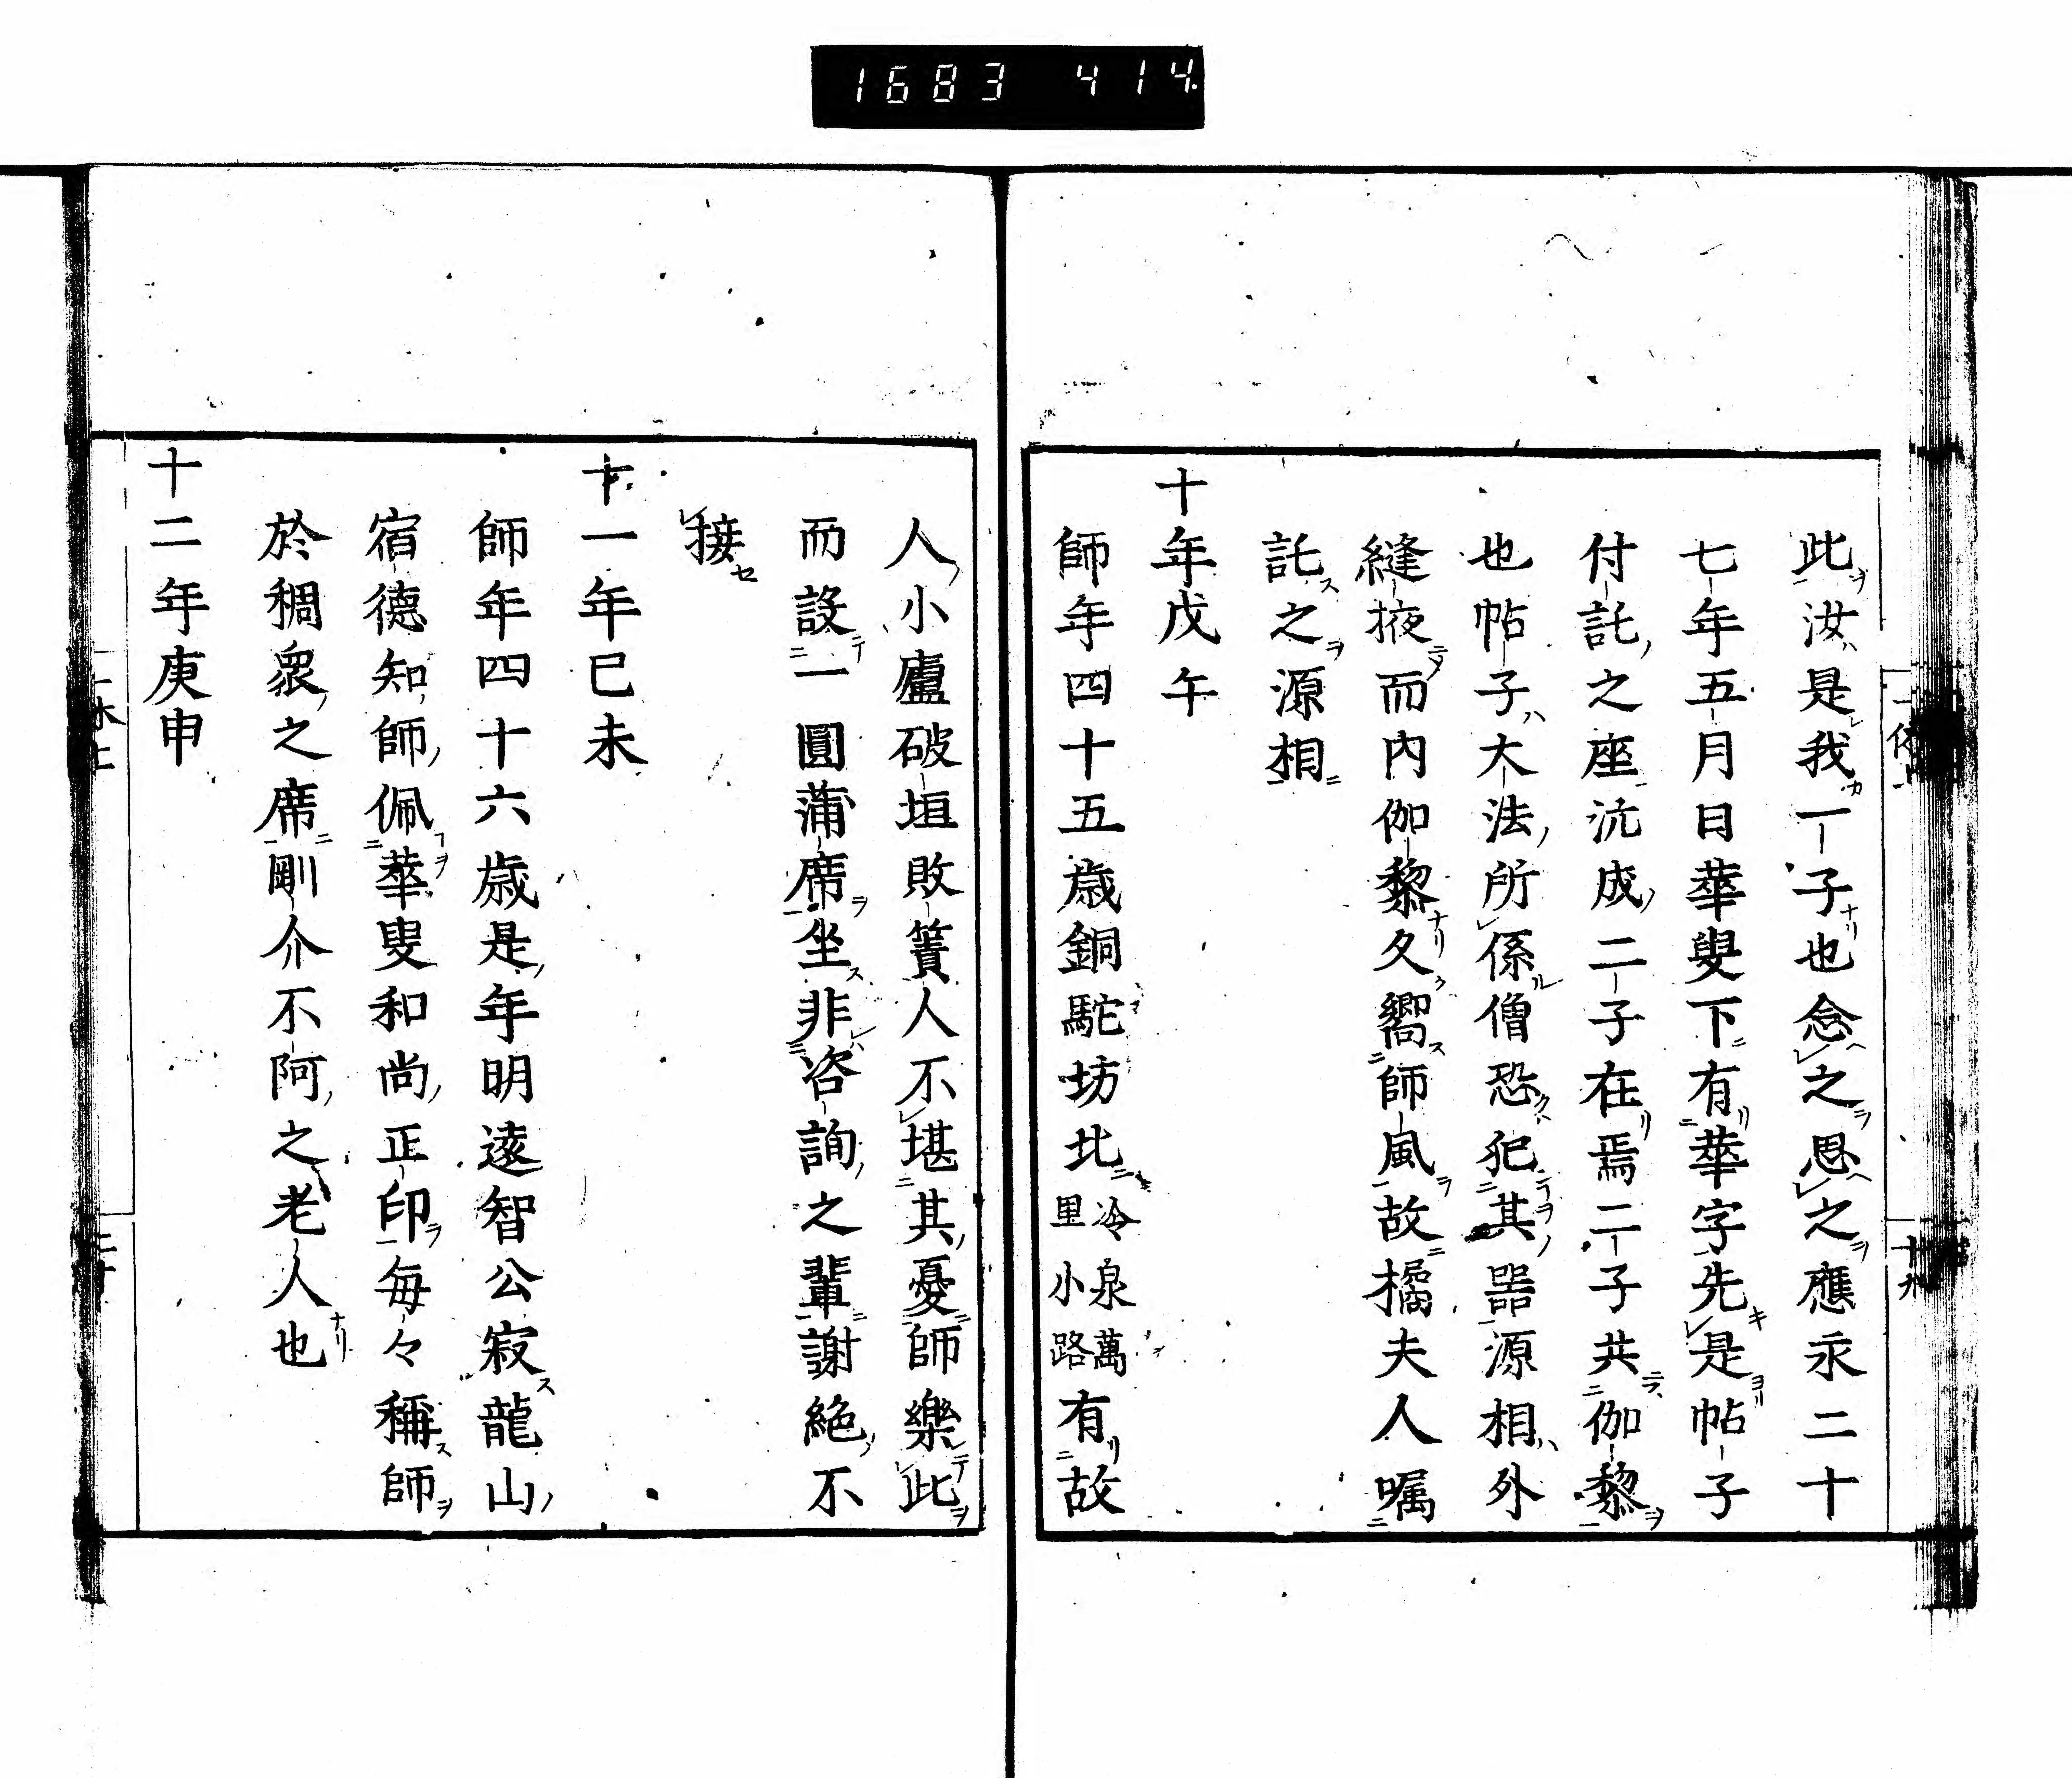 1683 414
此汝是我一子也念之思之應永二十
七年五月日華叟下有華字先是帖子
付託之座沆成二子在焉二子共伽黎
也帖子大法所係僧恐犯其器源相外
縫掖而內伽黎久嚮師風故橘夫人囑
託之源相
十年戊午
師年四十五歲銅駝坊北冷泉萬里小路有故
人小廬破垣敗簀人不堪其憂師樂此
而設一圓蒲席坐非咨詢之輩謝絶不
接
十一年己未
師年四十六歲是年明遠智公寂龍山
宿德知師佩華叟和尚正印每々稱師
於稠眾之席剛介不阿之老人也
十二年庚申